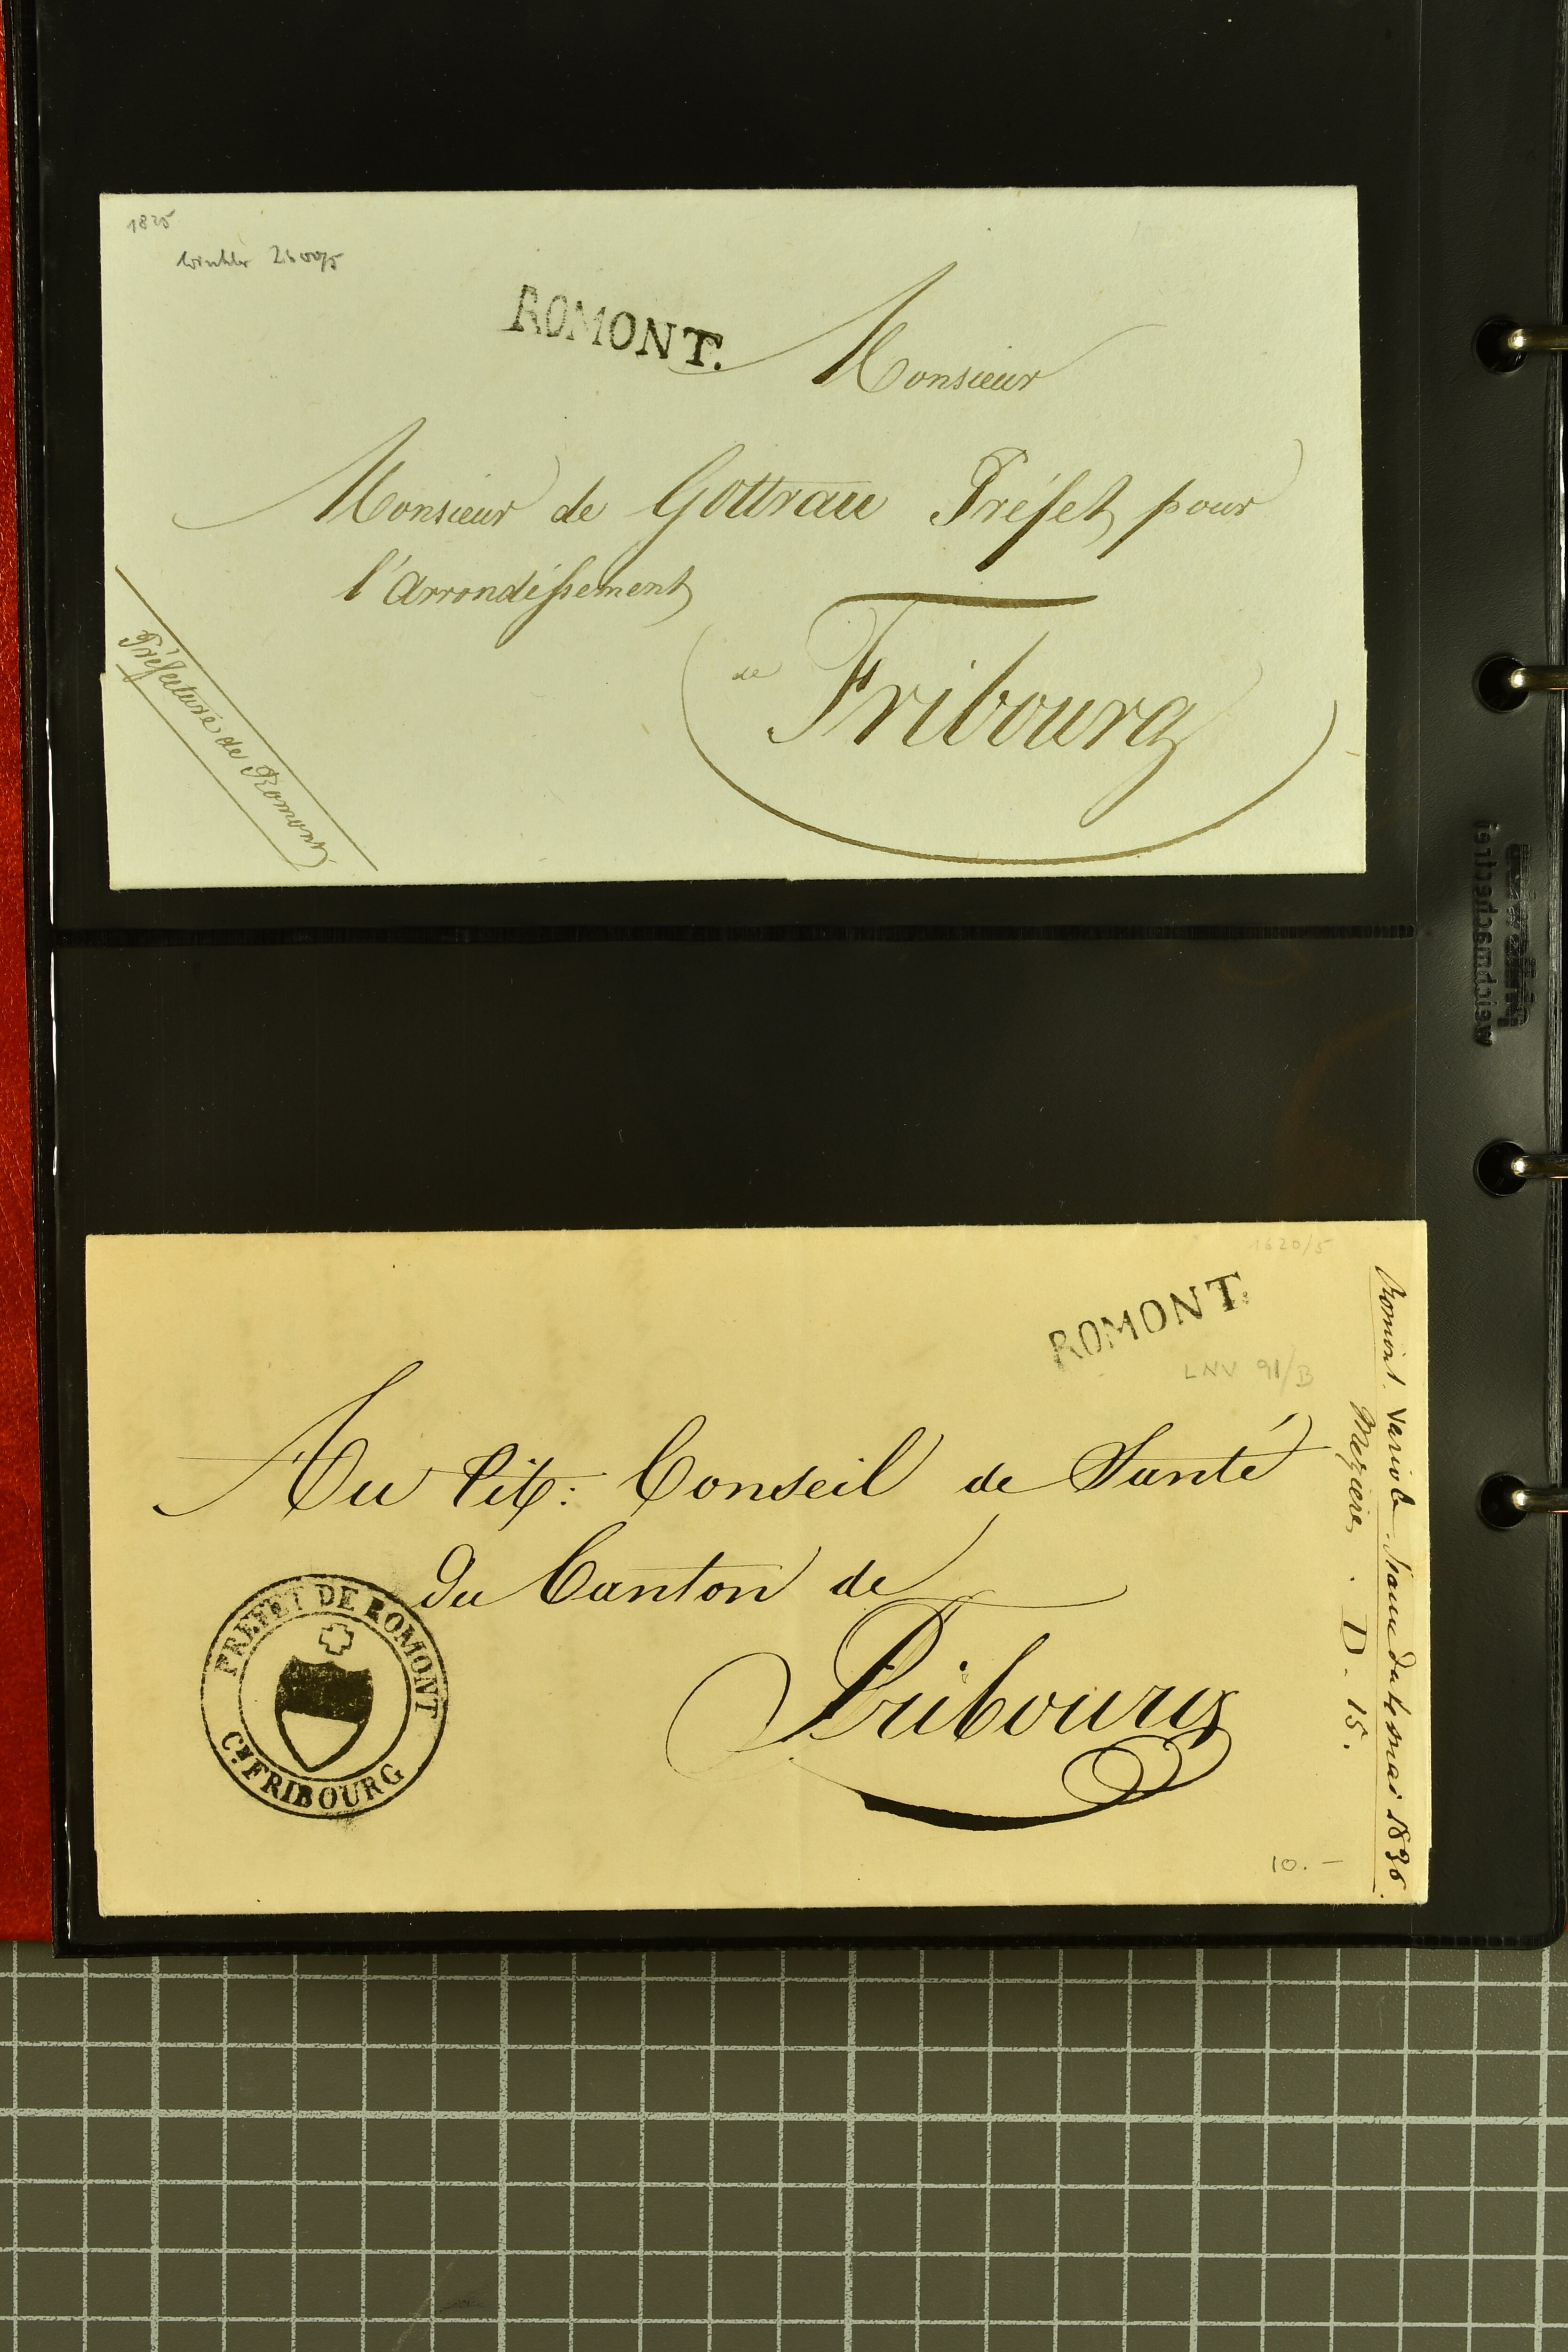 1825
Winkler 2600/5
ROMONT.
Monsieur
Monsieur de Gottrau Préfet pour
l'Arrondissement
de
Fribourg
Préfecture de Romont
1620/5
ROMONT.
LNV 91/B
Au tit: Conseil de Santé
du Canton de
Fribourg
PREFET DE ROMONT
Cᴺ FRIBOURG
Romont. Variole. du 4 mai 1836.
Mezières. D. 15.
10.–